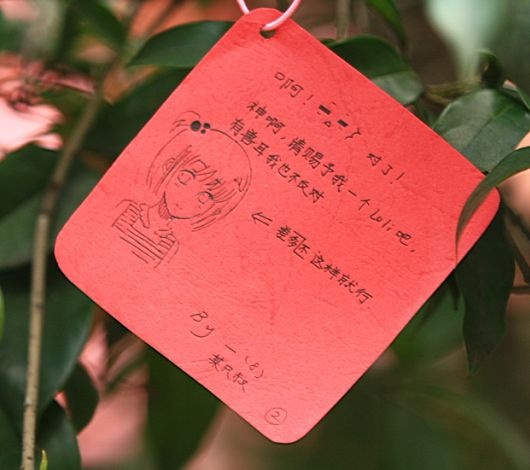 啊! 对了!
神啊,请赐予我一个Loli吧,
有兽耳我也不反对
← 差多这样就行.
By 一(8)
某只叔
②